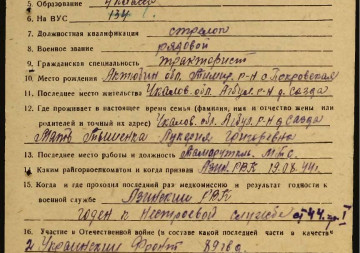 5. Образование 4 класса
6. На ВУС 134
7. Должностная квалификация стрелок
8. Военное звание рядовой
9. Гражданская специальность тракторист
10. Место рождения Актюбин обл. р-н с. Покровская
11. Последнее место жительства Чкалов. обл. р-н д. Сазда
12. Где проживает в настоящее время семья (фамилия, имя и отчество жены или
родителей и точный их адрес) Чкалов. обл. р-н д Сазда
Мать Тышенка Лукерия Григоревна
13. Последнее место работы и должность М.Т.С.
14. Каким райгорвоенкоматом и когда призван РВК 19.08.44г.
15. Когда и где проходил последний раз медкомиссию и результат годности к
военной службе РВК
годен к нестроевой службе ст 44. гр. I
16. Участие в Отечественной войне (в составе какой последней части в качестве
2 Украинский Фронт